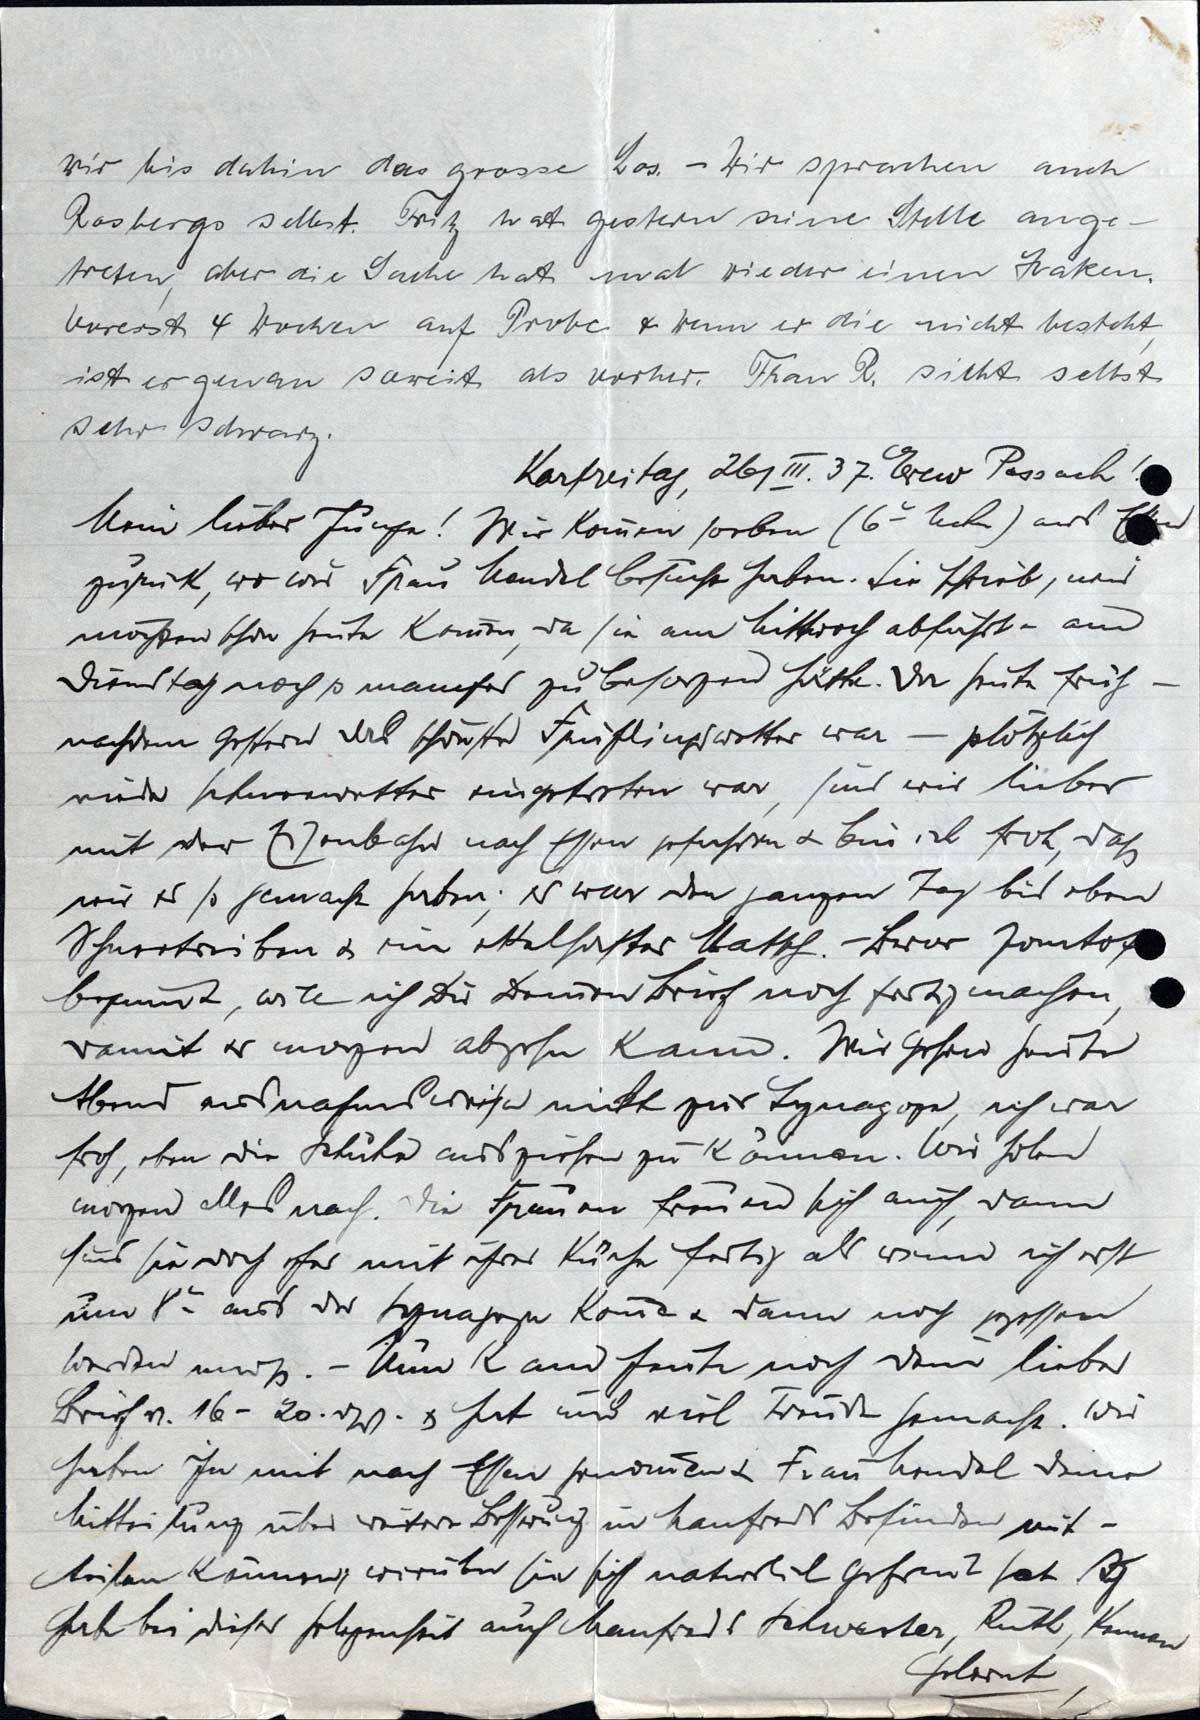 wir bis dahin das grosse Los. – Wir sprachen auch
Rosbergs selbst. Fritz hat gestern seine Stelle ange-
treten, aber die Sache hat mal wieder einen Haken.
Vorerst 4 Wochen auf Probe & wenn er die nicht besteht,
ist er genau soweit als vorher. Frau R. sieht selbst
sehr schwarz.
Karfreitag, 26/III. 37. Erew Pessach!
Mein lieber Junge! Wir komen soeben (6 Uhr) aus Essen
zurück, wo wir Frau Mendel besucht haben. Sie schrieb, wir
möchten schon heute komen, da sie am Mittwoch abführt – am
Dienstag noch so manches zu besorgen hätte. Da heute früh –
nachdem gestern das schönste Frühlingswetter war – plötzlich
wieder Schneewetter eingetreten war, sind wir lieber
mit der Eisenbahn nach Essen gefahren & bin ich froh, daß
wir es so gemacht haben; es war den ganzen Tag bis eben
Schneetreiben & ein ekelhafter Matsch. – Bevor Jomtof
beginnt, will ich Dir Deinen Brief noch fertig machen,
damit er morgen abgehn kann. Wir gehen heute
Abend ausnahmsweise nicht zur Synagoge, ich war
froh, eben die Schuhe ausziehen zu können. Wir holen
morgen alles nach. Die Frauen freuen sich auch, dann
sind sie doch eher mit ihrer Küche fertig als wenn ich erst
um 8 aus der Synagoge kome & dann noch gegessen
werden muß. – Nun kam heute noch Dein lieber
Brief v. 16 – 20. ds. & hat uns viel Freude gemacht. Wir
haben ihn mit nach Essen genomen & Frau Mendel Deine
Mitteilung über weitere Besserung in Manfreds Befinden mit-
teilen können, worüber sie sich natürlich gefreut hat. Ich
habe bei dieser Gelegenheit auch Manfreds Schwester, Ruth, kennen
gelernt,